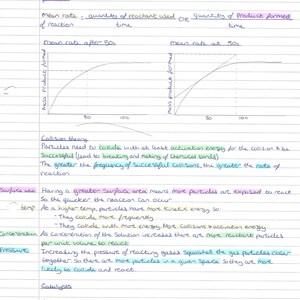 Mean rate = quantity of reactant used OR quantity of product formed
of reaction time time
Mean rate after 50s
Mean rate at 50s
Mass product formed
Mass product formed
50 100
50 100
Collision theory
Particles need to collide with at least activation energy for the collision to be
successful (lead to breaking and making of chemical bonds)
The greater the frequency of successful collisions, the greater the rate of
reaction
Surface area Having a greater surface area means more particles are exposed to react
so the quicker the reaction can occur
temp As a higher temp, particles have more kinetic energy so:
• They collide more frequently
• They collide with more energy. More collisions > activation energy
Concentration As concentration of the solution increases there are more reactant particles
per unit volume to react
Pressure Increasing the pressure of reacting gases the gas particles closer
together so there are more particles in a given space so they are more
likely to collide and react.
Catalysts